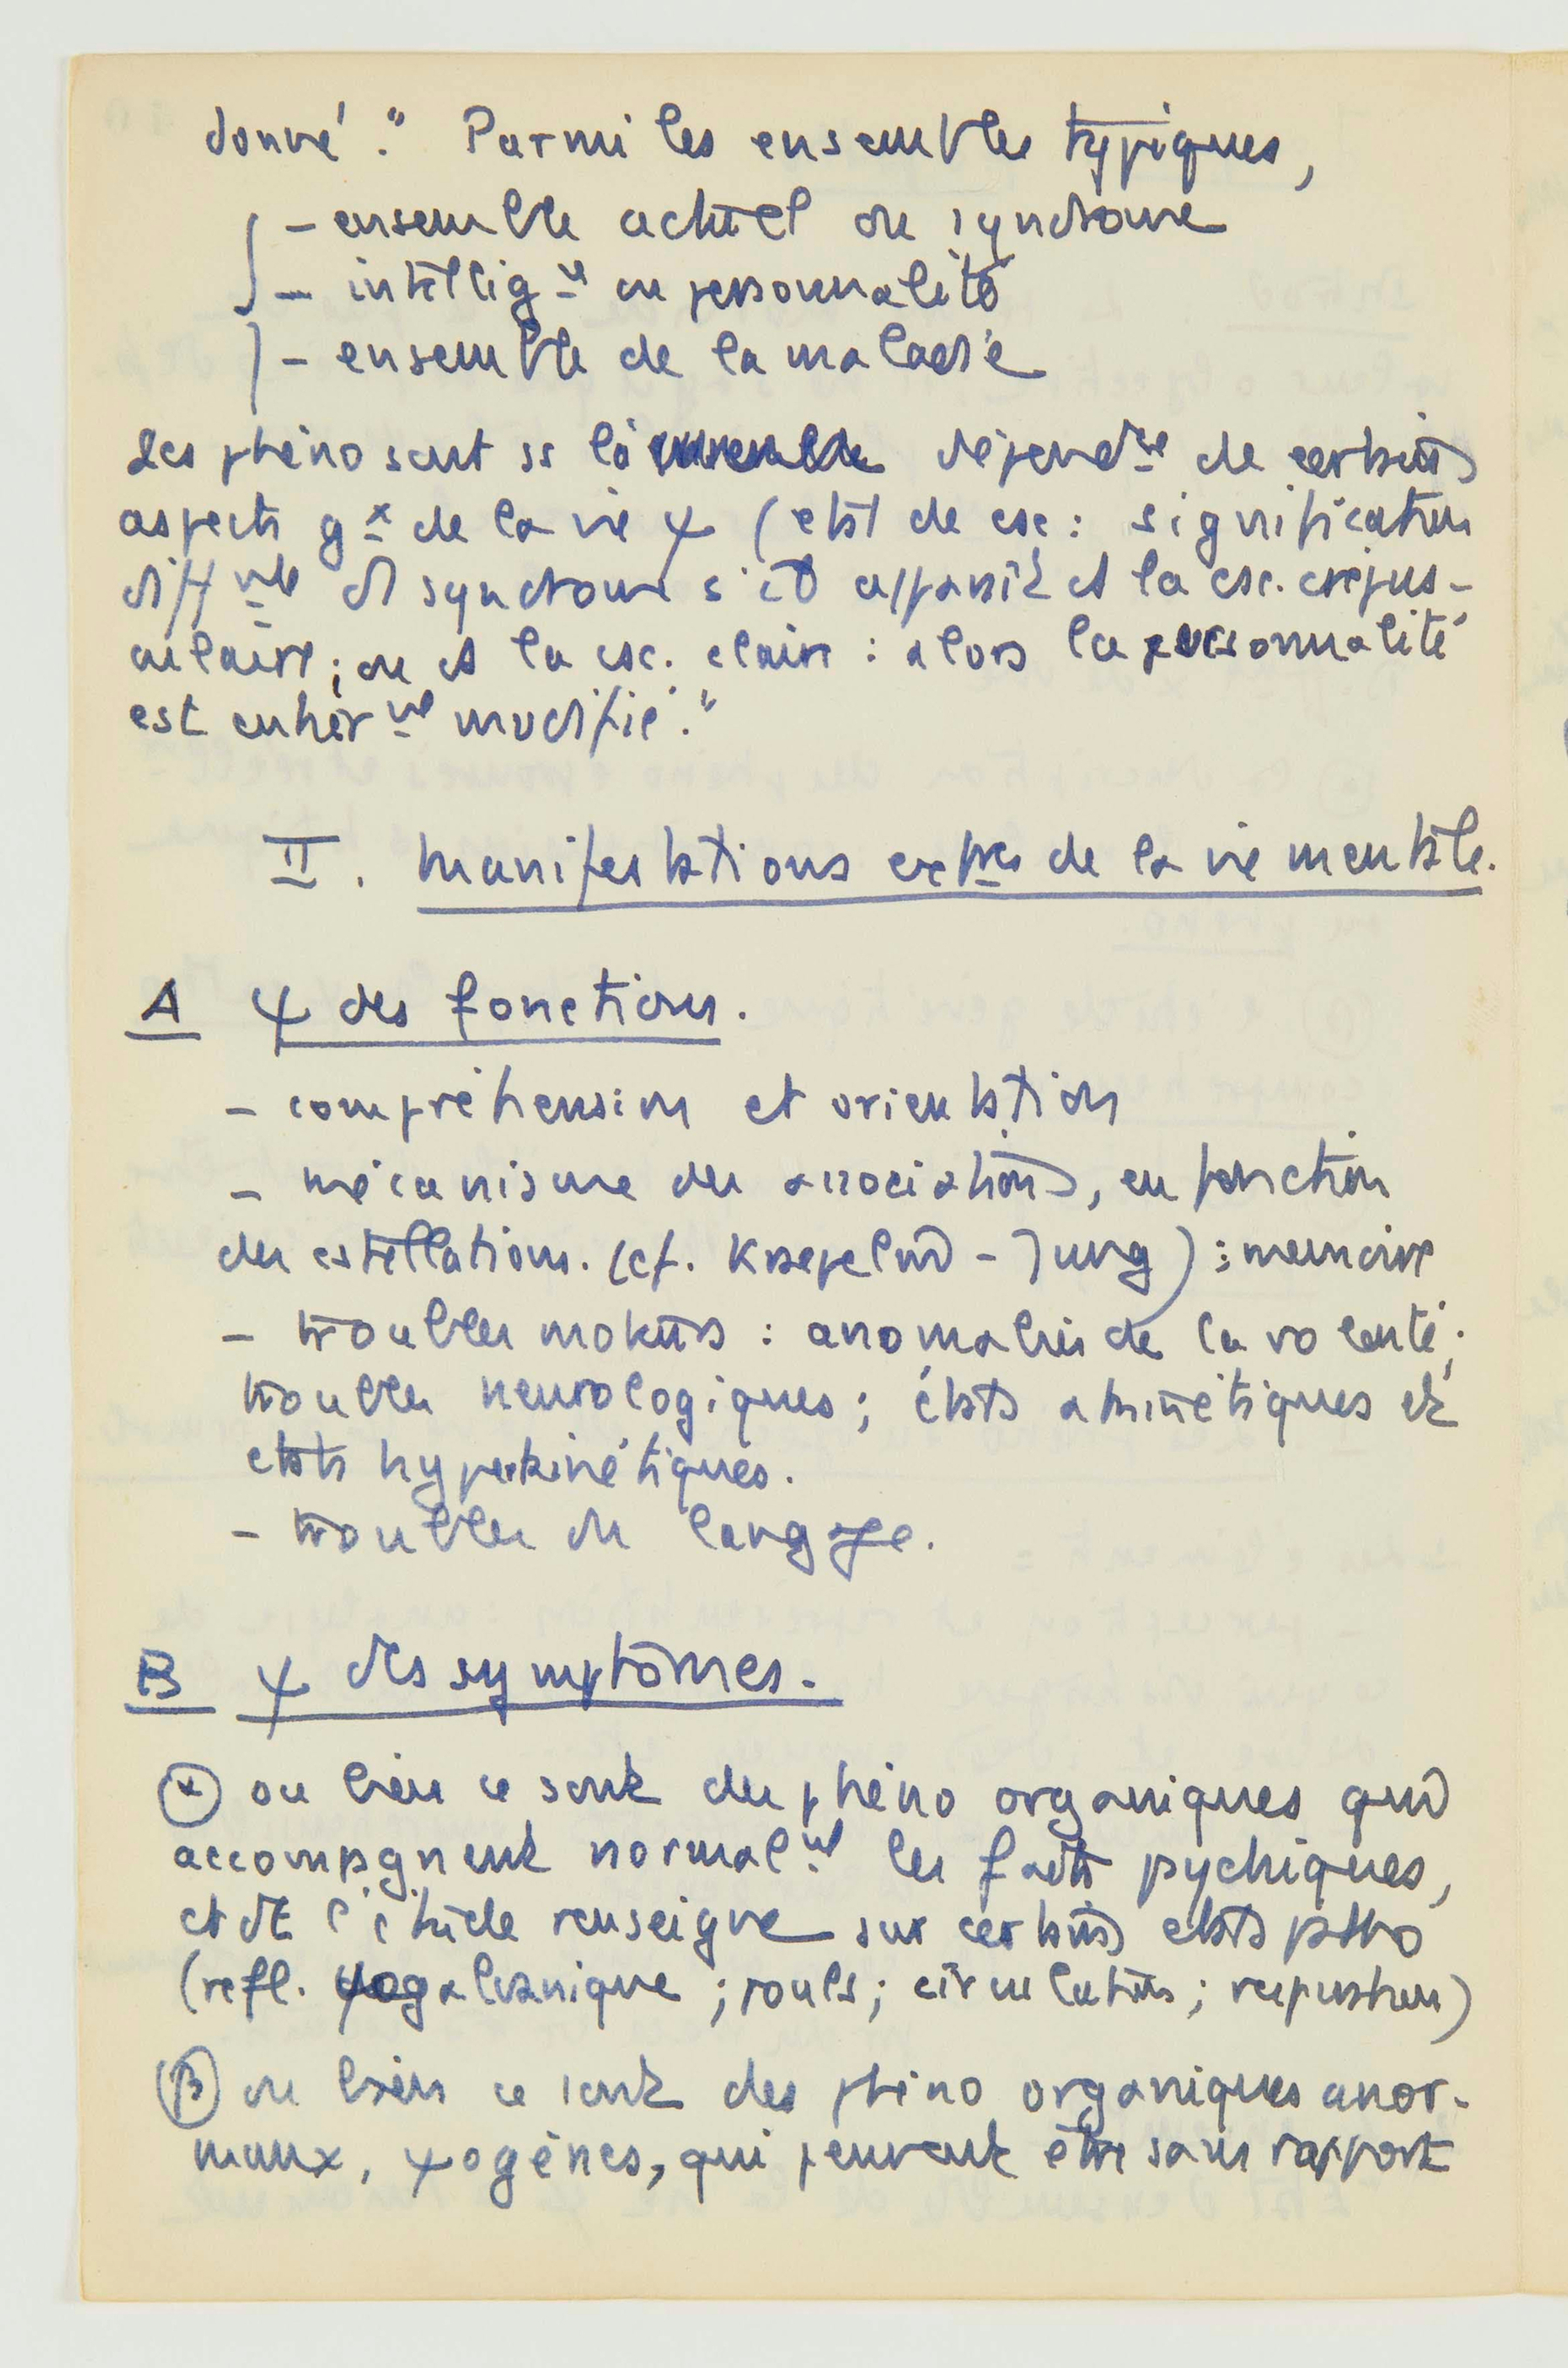 donné." Parmi les ensembles typiques,
- ensemble actuel ou syndrome
- intellig^ce ou personnalité
- ensemble de la maladie
Les phéno sont ss la dépend^ce de certains
aspects gx de la vie ψ (état de csc : signification
diff^nte d syndrome s'il apparaît ds la csc. crépus-
culaire ; ou ds la csc. claire : alors la personnalité
est entièr^mt modifié."
II. Manifestations exp^ées de la vie mentale.
A ψ des fonctions.
- compréhension et orientation
- mécanisme des associations, en fonction
des cstellations. (cf. Kraepelin - Jung) : mémoire
- troubles moteurs : anomalies de la volonté ;
troubles neurologiques ; états akinétiques et
états hyperkinétiques.
- troubles du langage.
B ψ des symptômes.
α ou bien ce sont des phéno organiques qui
accompagnent normal^mt les faits pychiques,
et dt l'étude renseigne sur certains états patho
(refl. ψogalvanique ; pouls ; circulation ; respiration)
β ou bien ce sont des phéno organiques anor-
maux, ψogènes, qui peuvent être sans rapport